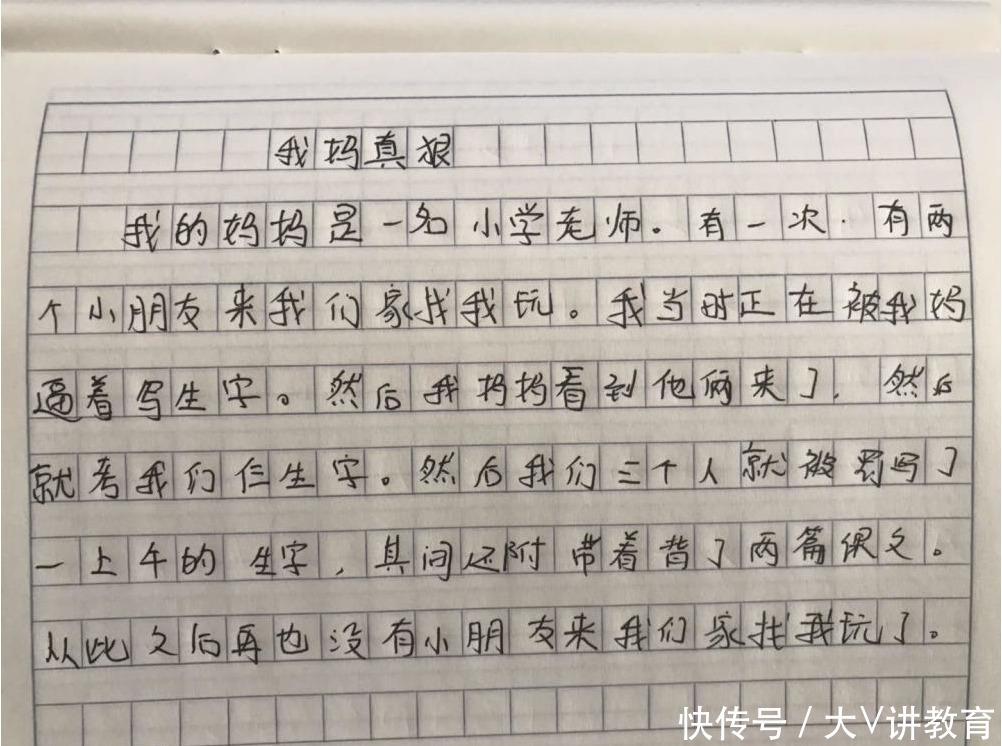 我妈真狠
我的妈妈是一名小学老师。有一次.有两
个小朋友来我们家找我玩。我当时正在被我妈
逼着写生字。然后我妈妈看到他俩来了.然后
就考我们仨生字。然后我们三个人就被罚写了
一上午的生字,其间还附带着背了两篇课文。
从此之后再也没有小朋友来我们家找我玩了。
快传号/大V讲教育